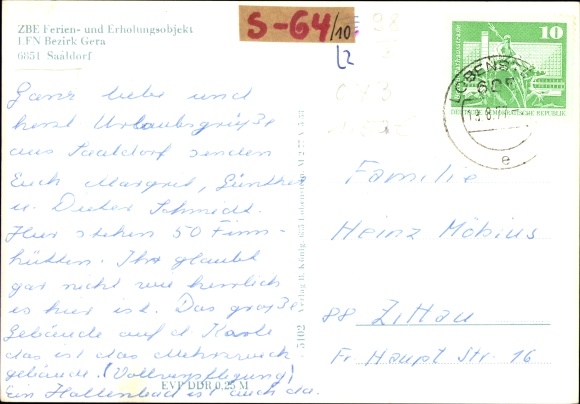 ZBE Ferien- und Erholungsobjekt
LFN Bezirk Gera
6851 Saaldorf
S-64/10
L2
10
LOBENS
DEMOKRATISCHE REPUBLIK
e
Ganz liebe und
herzl. Urlaubsgrüße
aus Saaldorf senden
Euch Margret, Günther
u. Dieter Schmidt.
Hier stehen 50 Finn-
hütten. Ihr glaubt
gar nicht wie herrlich
es hier ist. Das große
Gebäude auf d Karte
das ist das Mehrzweck
gebäude. (Vollverpflegung)
Ein Hallenbad ist auch da.
EVP DDR 0,25 M
5102 Verlag H. König, 685 Lobenstein
Familie
Heinz Möbius
88 Zittau
Fr. Haupt Str. 16